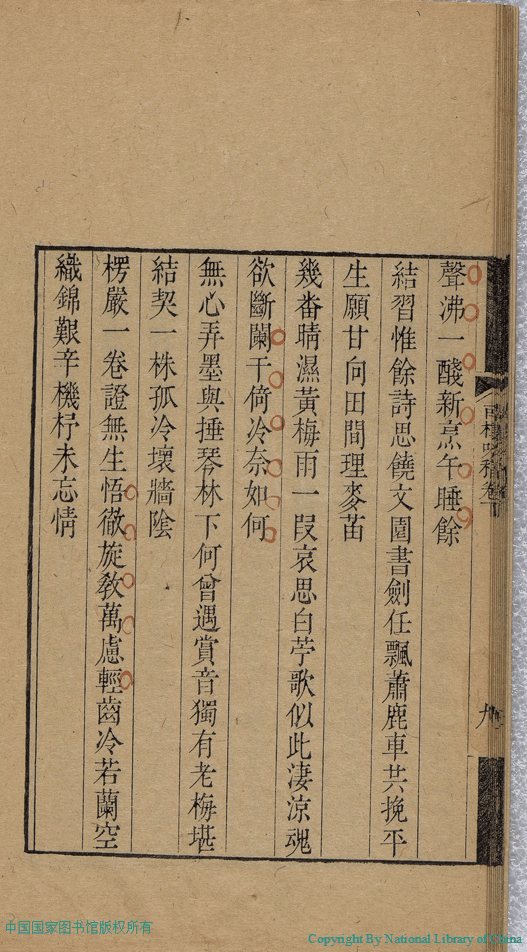 聲沸一醆新烹午睡餘
結習惟餘詩思饒文園書劍任飄蕭鹿車共挽平
生願甘向田間理麥苗
幾番晴濕黃梅雨一叚哀思白苧歌似此淒涼魂
欲斷闌干倚冷奈如何
無心弄墨與捶琴林下何曾遇賞音獨有老梅堪
結契一株孤冷壞牆陰
楞嚴一卷證無生悟徹旋教萬慮輕齒冷若蘭空
織錦艱辛機杼未忘情
吟稿卷下
九
中国国家图书馆版权所有
Copyright By National Library of China